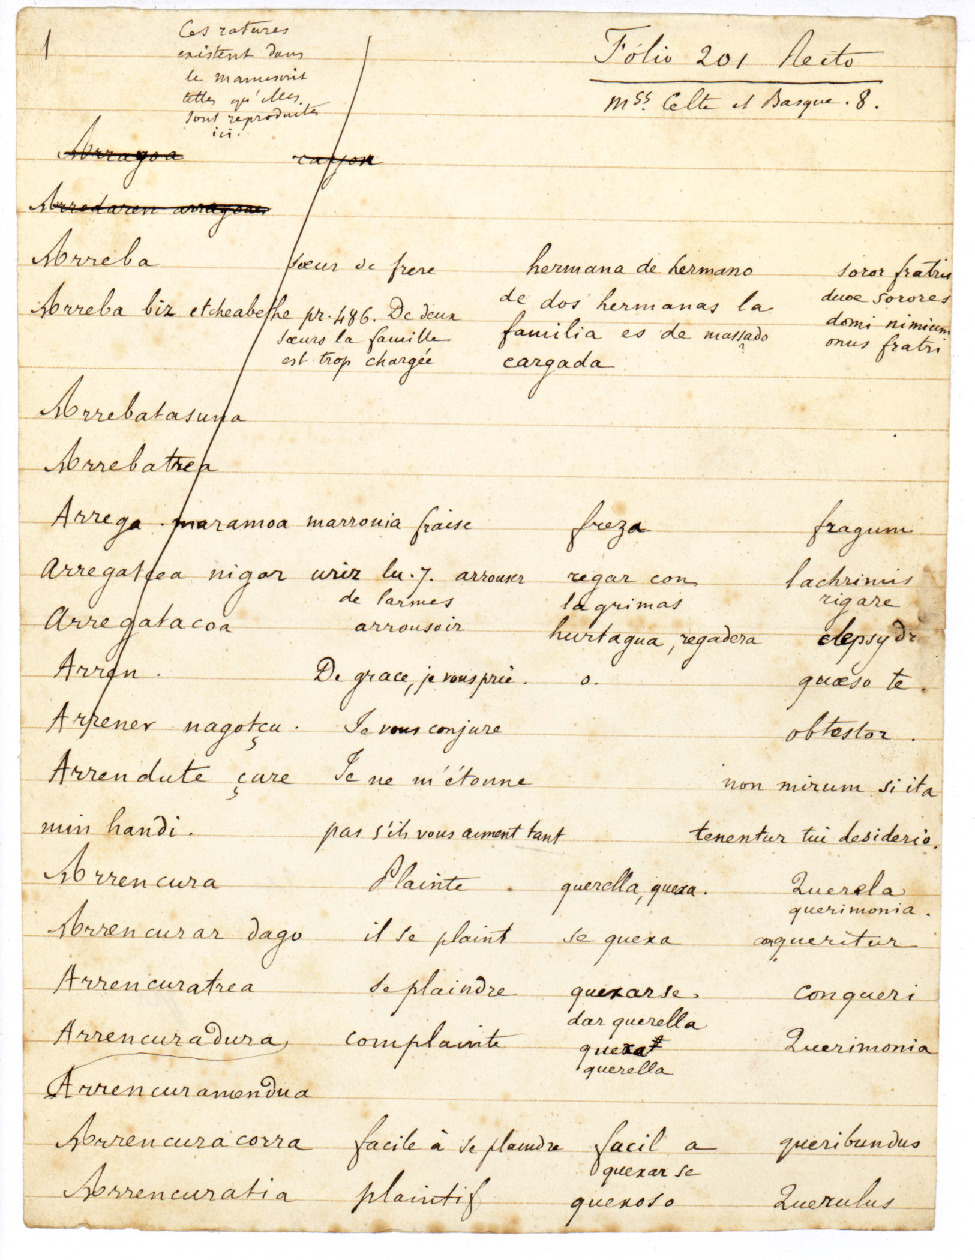 1
Ces ratures
existent dans
le manuscrit
telles qu'elles
sont reproduites
ici.
Folio 201 Recto
mss Celte et Basque. 8.
Arragoa
Arredaren arragoa
Arreba sœur de frere hermana de hermano soror fratris
Arreba biz etcheabethe pr. 486. De deux de dos hermanas la duœ sorores
sœurs la famille familia es de massado domi nimium
est trop chargée cargada onus fratri
Arrebatasuna
Arrebatrea
Arrega . maramoa marrouia fraise freza fragum
Arregatcea nigar uriz lu. 7. arrouser regar con lachrimis
de larmes lagrimas rigare
Arregatacoa arrousoir hurtagua, regadera clepsydr
Arren . De grace, je vous prie . o. quœso te .
Arrener nagotçu . Je vous conjure obtestor .
Arrendute çure Je ne m'étonne non mirum si ita
min handi . pas s'ils vous aiment tant tenentur tui desiderio.
Arrencura Plainte . querella, quexa . Querela
querimonia .
Arrencurar dago il se plaint se quexa queritur
Arrencuratrea se plaindre quexarse . conqueri
dar querella
Arrencuradura, complainte quexa Querimonia
querella
Arrencuramendua
Arrencuracorra facile à se plaindre facil a queribundus
quexarse
Arrencuratia plaintif quexoso Querulus